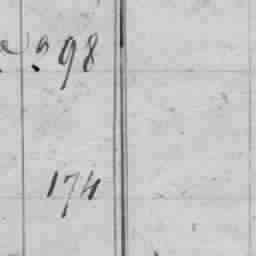 98
174